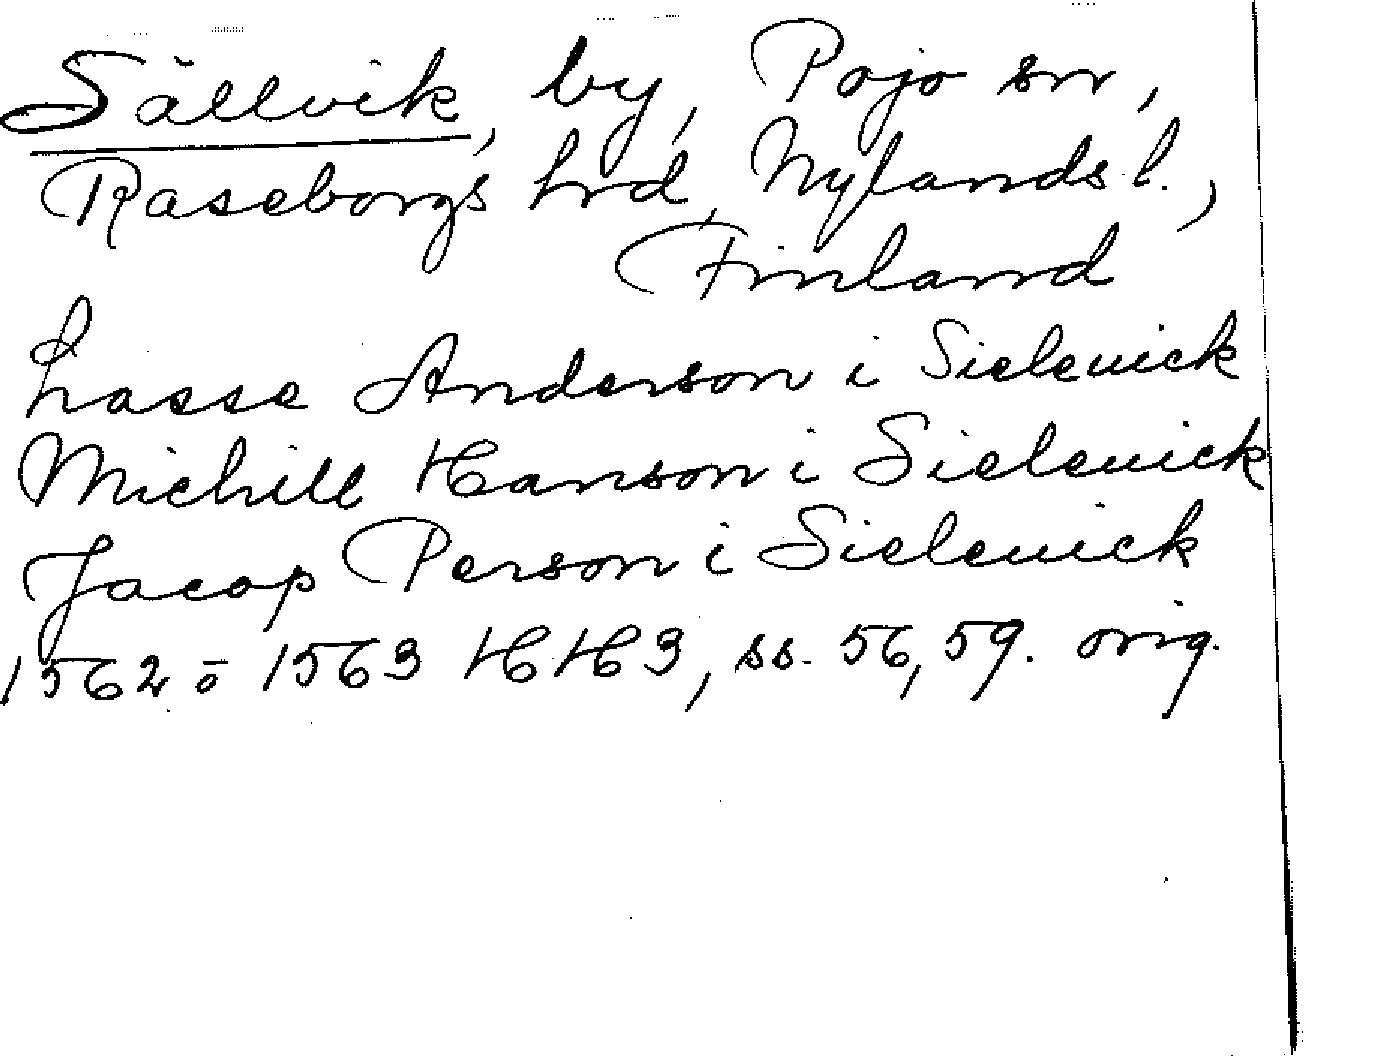 Sällvik, by, Pojo sn,
Raseborgs hrd, Nylands l.,
Finland
Lasse Anderson i Sieleuick
Michill Hanson i Sieleuick
Jacop Person i Sieleuick
1562 o 1563 HH3, ss. 56, 59. orig.